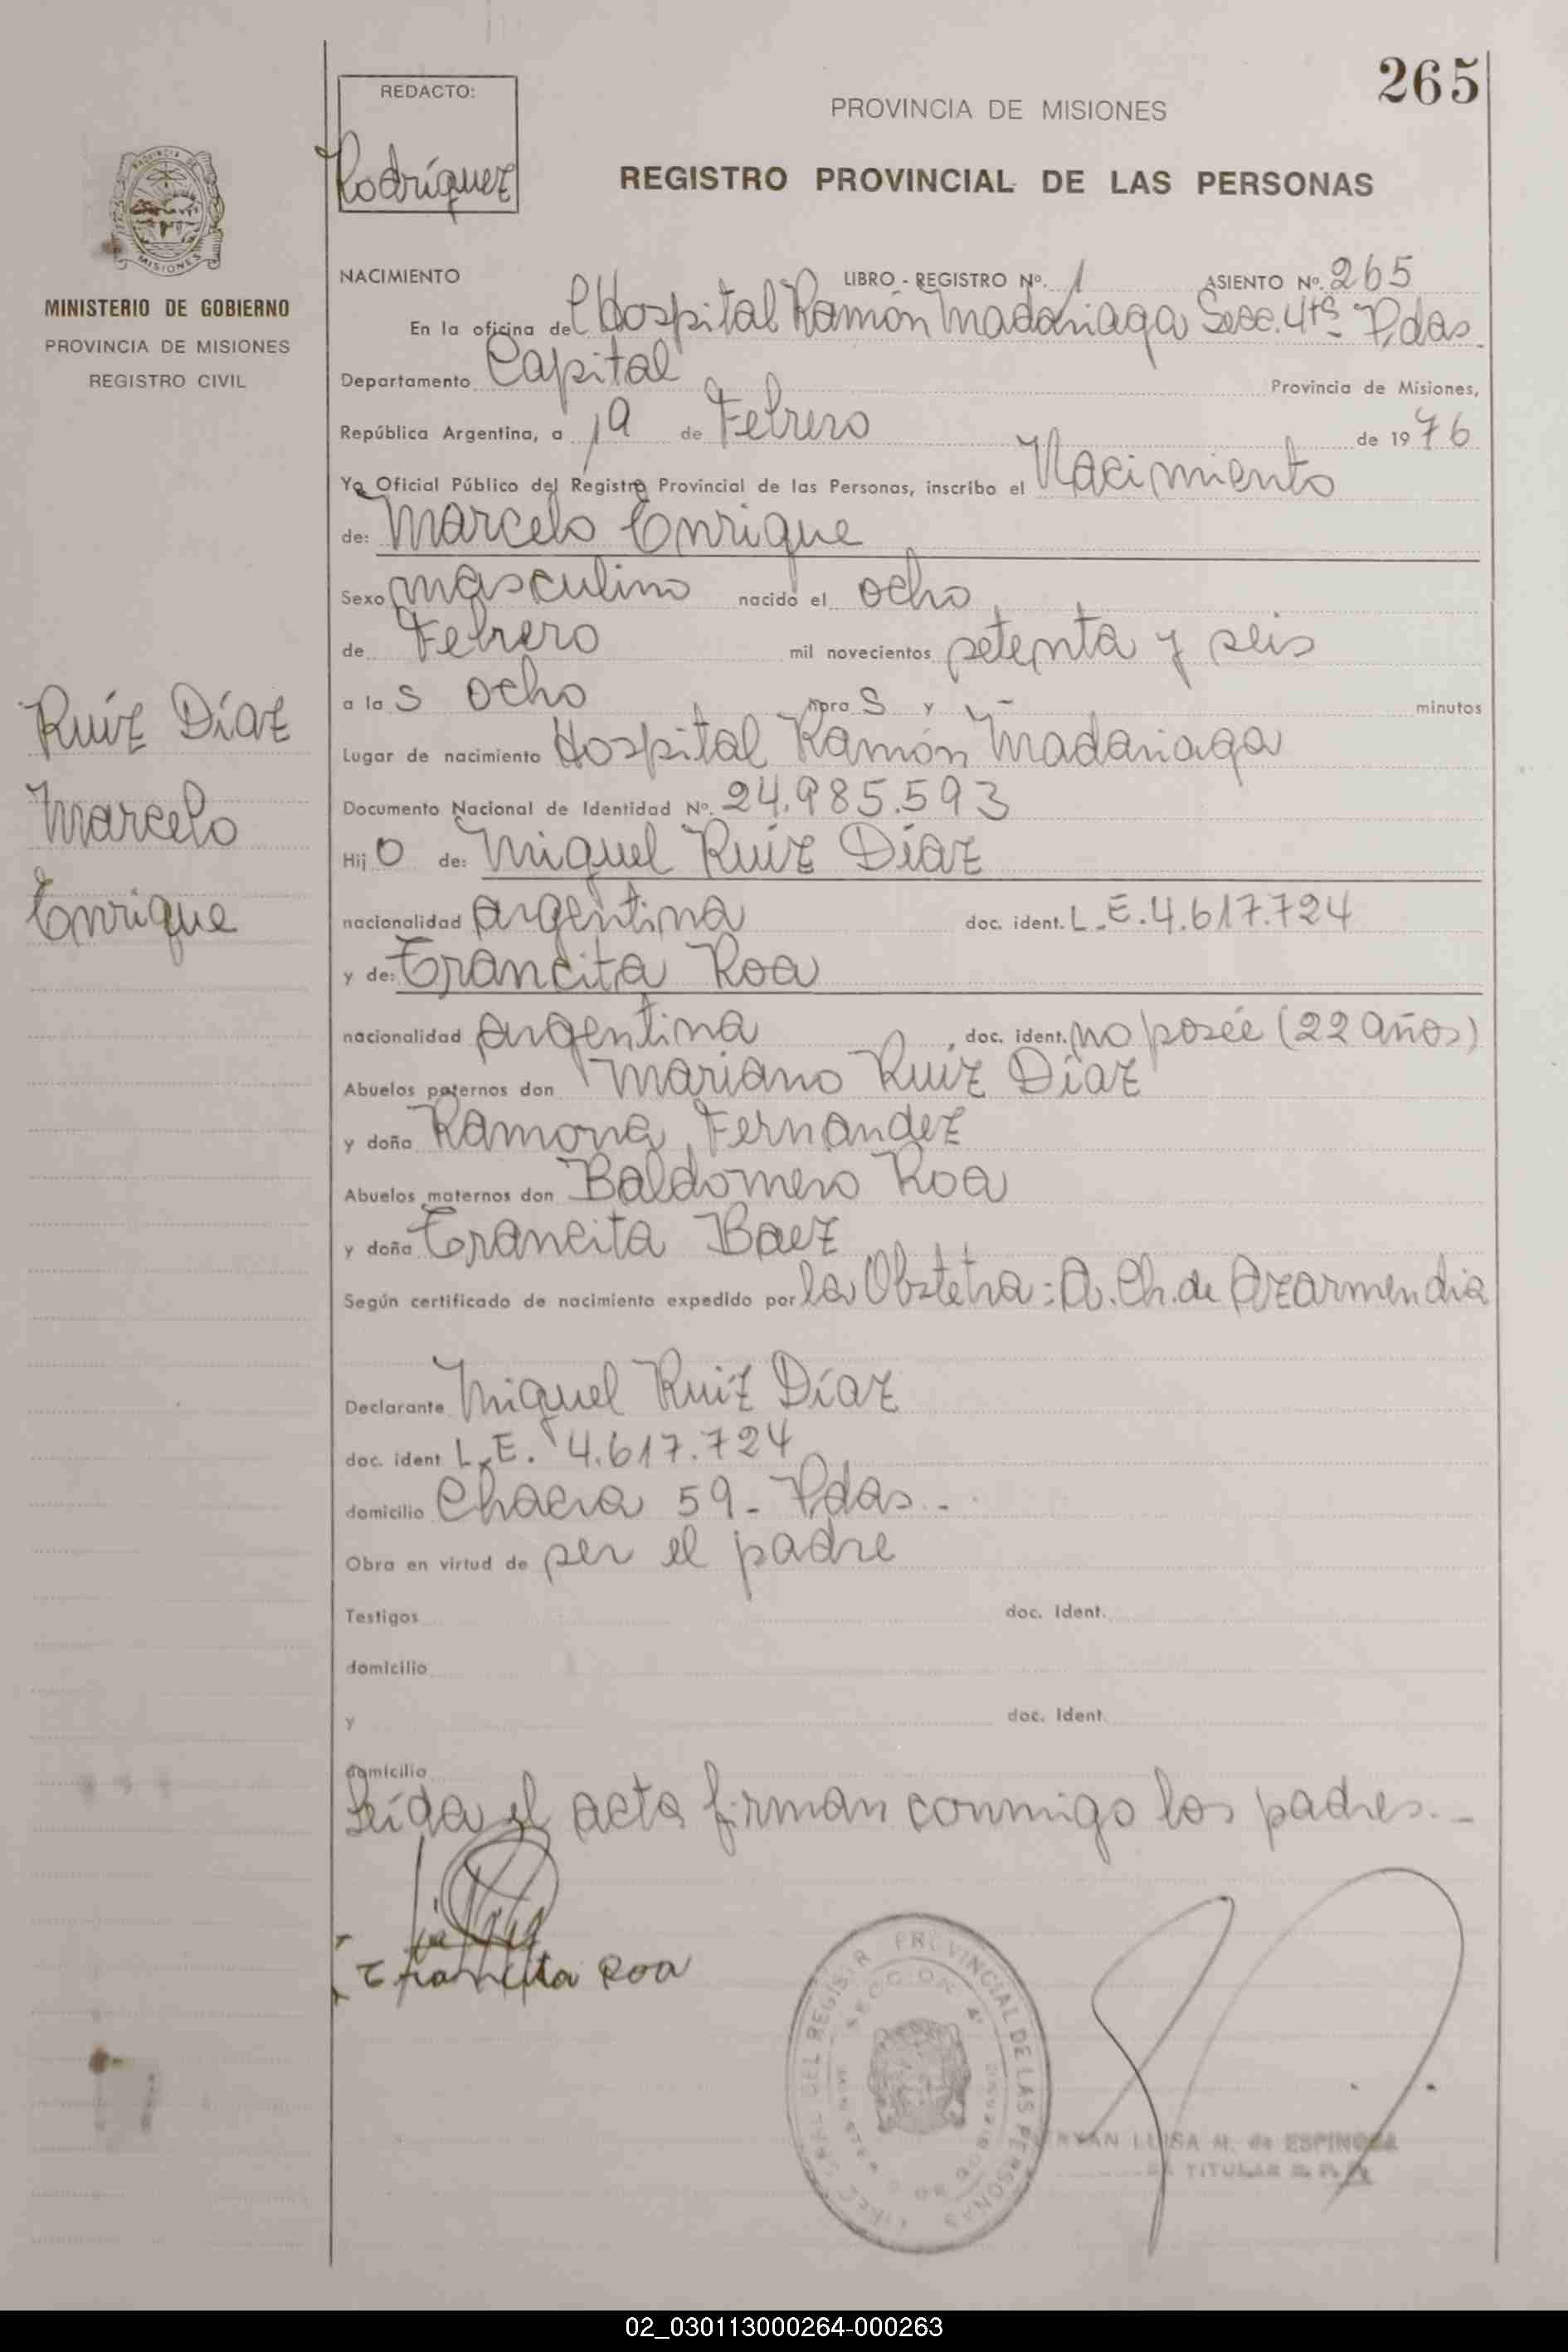 265
REDACTO:
Rodríguez
PROVINCIA DE MISIONES
REGISTRO PROVINCIAL DE LAS PERSONAS
MISIONES
MINISTERIO DE GOBIERNO
PROVINCIA DE MISIONES
REGISTRO CIVIL
NACIMIENTO LIBRO - REGISTRO Nº. 1 ASIENTO Nº. 265
En la oficina del Hospital Ramón Madariaga Secc. 4ta P,das.
Departamento Capital Provincia de Misiones,
República Argentina, a 19 de Febrero de 1976
Yo Oficial Público del Registro Provincial de las Personas, inscribo el Nacimiento
de: Marcelo Enrique
Sexo masculino nacido el ocho
de Febrero mil novecientos setenta y seis
a las ocho horas y - minutos
Lugar de nacimiento Hospital Ramón Madariaga
Documento Nacional de Identidad Nº. 24.985.593
Hijo de: Miguel Ruíz Díaz
nacionalidad argentina doc. ident. L.E. 4.617.724
y de: Trancita Roa
nacionalidad argentina doc. ident. no posée (22 años)
Abuelos paternos don Mariano Ruíz Díaz
y doña Ramona Fernandez
Abuelos maternos don Baldomero Roa
y doña Trancita Baez
Según certificado de nacimiento expedido por la Obstetra: A. Ch. de Azarmendia
Declarante Miguel Ruiz Díaz
doc. ident L.E. 4.617.724
domicilio Chacra 59 - P,das.-
Obra en virtud de ser el padre
Testigos doc. Ident.
domicilio
y doc. Ident.
domicilio
Leída el acta firman conmigo los padres.-
Ruíz Díaz
Marcelo
Enrique
Trancita Roa
PROVINCIAL DE LAS PERSONAS
SECCION 4ª
LUISA M. de ESPINOSA
TITULAR
02_030113000264-000263